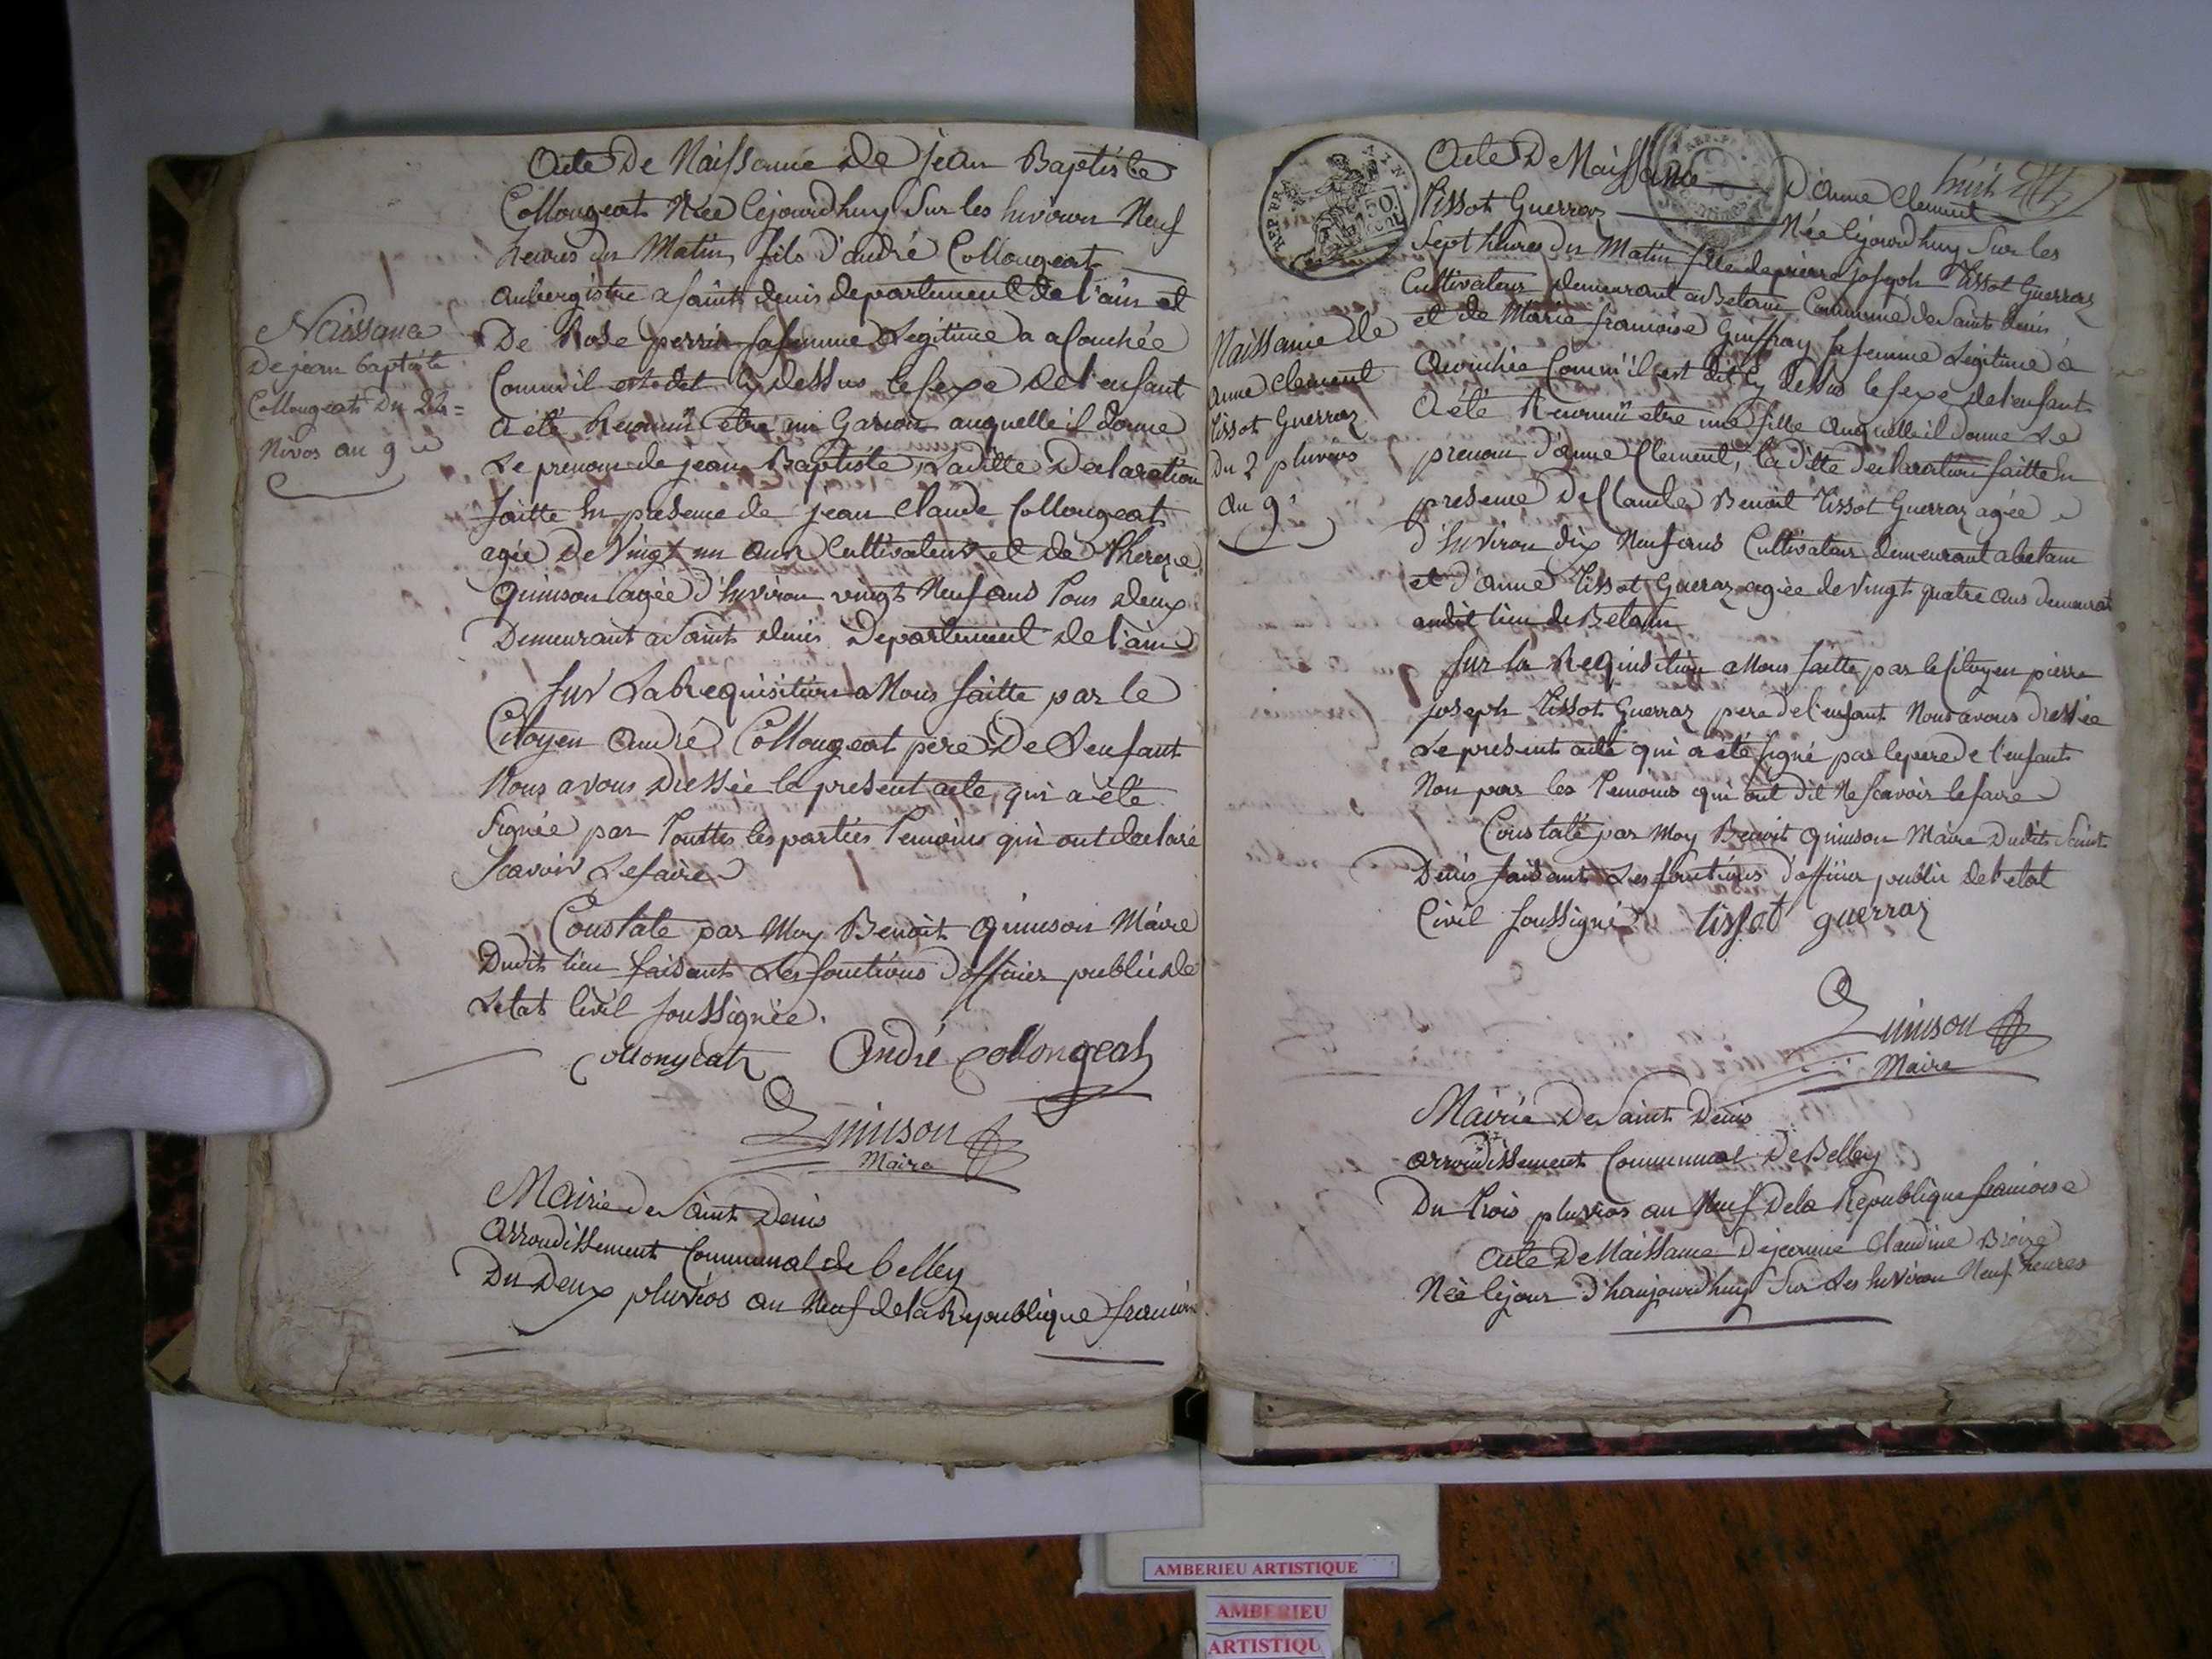 Acte De Naissance de jean Baptiste
Collongeat Née Cejourdhuy Sur les Environ Neuf
heures du Matin fils d'andré Collongeat
aubergistre a saint denis departement de l'ain et
De Rose perrin sa femme Legitime a acouchée
Comm'il est dit cy dessus le sexe de l'enfant
a été Reconnü etre un Garson auquelle il donne
Le prenom de jean Baptiste, Laditte Declaration
faitte En presence de jean Claude Collongeat
agée de Vingt un ans Cultivateur et de Thereze
Quinson agée d'Environ vingt Neuf ans Tous deux
Demeurant a Saint denis Departement de l'ain
Sur La Requisition a Nous faitte par le
Citoyen andré Collongeat pere De L'enfant
Nous avons Dressée le present acte, qui a été
Signée par Touttes les parties Temoins qui ont declaré
Scavoir Le faire
Constaté par Moy Benoit Quinson Maire
Dudit lieu faisant Les fonctions d'officier public de
L'etat Civil soussignée.
Collongeat André Collongeat
Quinson
Maire
Mairie de Saint Denis
arrondissement Communal de belley
Du Deux pluvios an Neuf de la Republique francoise
Naissance
De jean baptiste
Collongeat Du 22=
Nivos an 9e
REP. FRA.
150
cent
huit
Acte De Naissance D'anne Clement
Tissot Guerraz Née Cejourdhuy Sur les
Sept heures du Matin fille de pierre joseph Tissot Guerraz
Cultivateur Demeurant a Betam Commune de Saint denis
et de Marie francoise Guiffray sa femme Legitime a
acouchée Comm'il est dit Cy dessus le sexe de l'enfant
a été Reconnü etre une fille auquelle il donne Le
prenom d'anne Clement, la ditte declaration faitte En
presence de Claude Benoit Tissot Guerraz agée
d'Environ dix Neuf ans Cultivateur demeurant a betam
et d'anne Tissot Guerraz agée de Vingt quatre ans demeurat
audit lieu de Betam
Sur la Requisition a Nous faitte par le Citoyen pierre
joseph Tissot Guerraz pere de l'enfant Nous avons dressée
Le present acte qui a été signé par le pere de l'enfant
Non par les Temoins qui ont dit Ne Scavoir le faire
Constaté par Moy Benoit Quinson Maire Dudit Saint
Denis faisant Les fonctions d'officier public de l'etat
Civil soussigné tissot guerraz
Quinson
Maire
Mairie De Saint Denis
arrondissement Communal De Belley
Du Trois pluvios an Neuf De la Republique francoise
Acte De Naissance De jeanne Claudine
Née Cejour d'haujourdhuy Sur Les Environ Neuf heures
Naissance de
anne Clement
Tissot Guerraz
Du 2 pluvios
an 9e
AMBERIEU ARTISTIQUE
AMBERIEU
ARTISTIQU